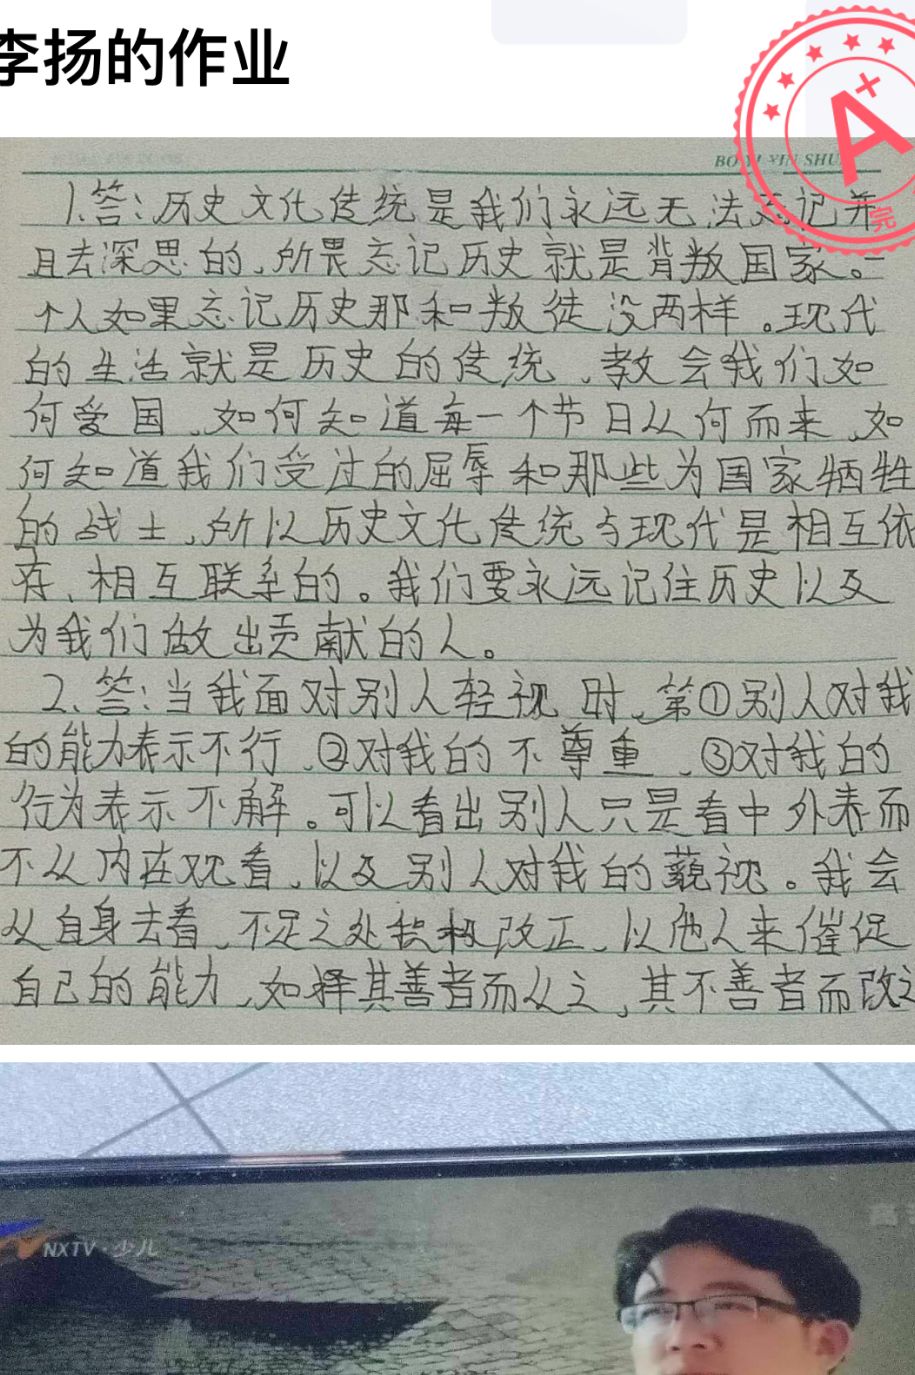 李扬的作业
A+
完
1.答:历史文化传统是我们永远无法忘记并
且去深思的,所畏忘记历史就是背叛国家。一
个人如果忘记历史那和叛徒没两样。现代
的生活就是历史的传统,教会我们如
何爱国,如何知道每一个节日从何而来,如
何知道我们受过的屈辱和那些为国家牺牲
的战士,所以历史文化传统与现代是相互依
存、相互联系的。我们要永远记住历史以及
为我们做出贡献的人。
2.答:当我面对别人轻视时,第①别人对我
的能力表示不行,②对我的不尊重,③对我的
行为表示不解。可以看出别人只是看中外表而
不从内在观看,以及别人对我的藐视。我会
从自身去看,不足之处积极改正,以他人来催促
自己的能力,如择其善者而从之,其不善者而改之
NXTV·少儿